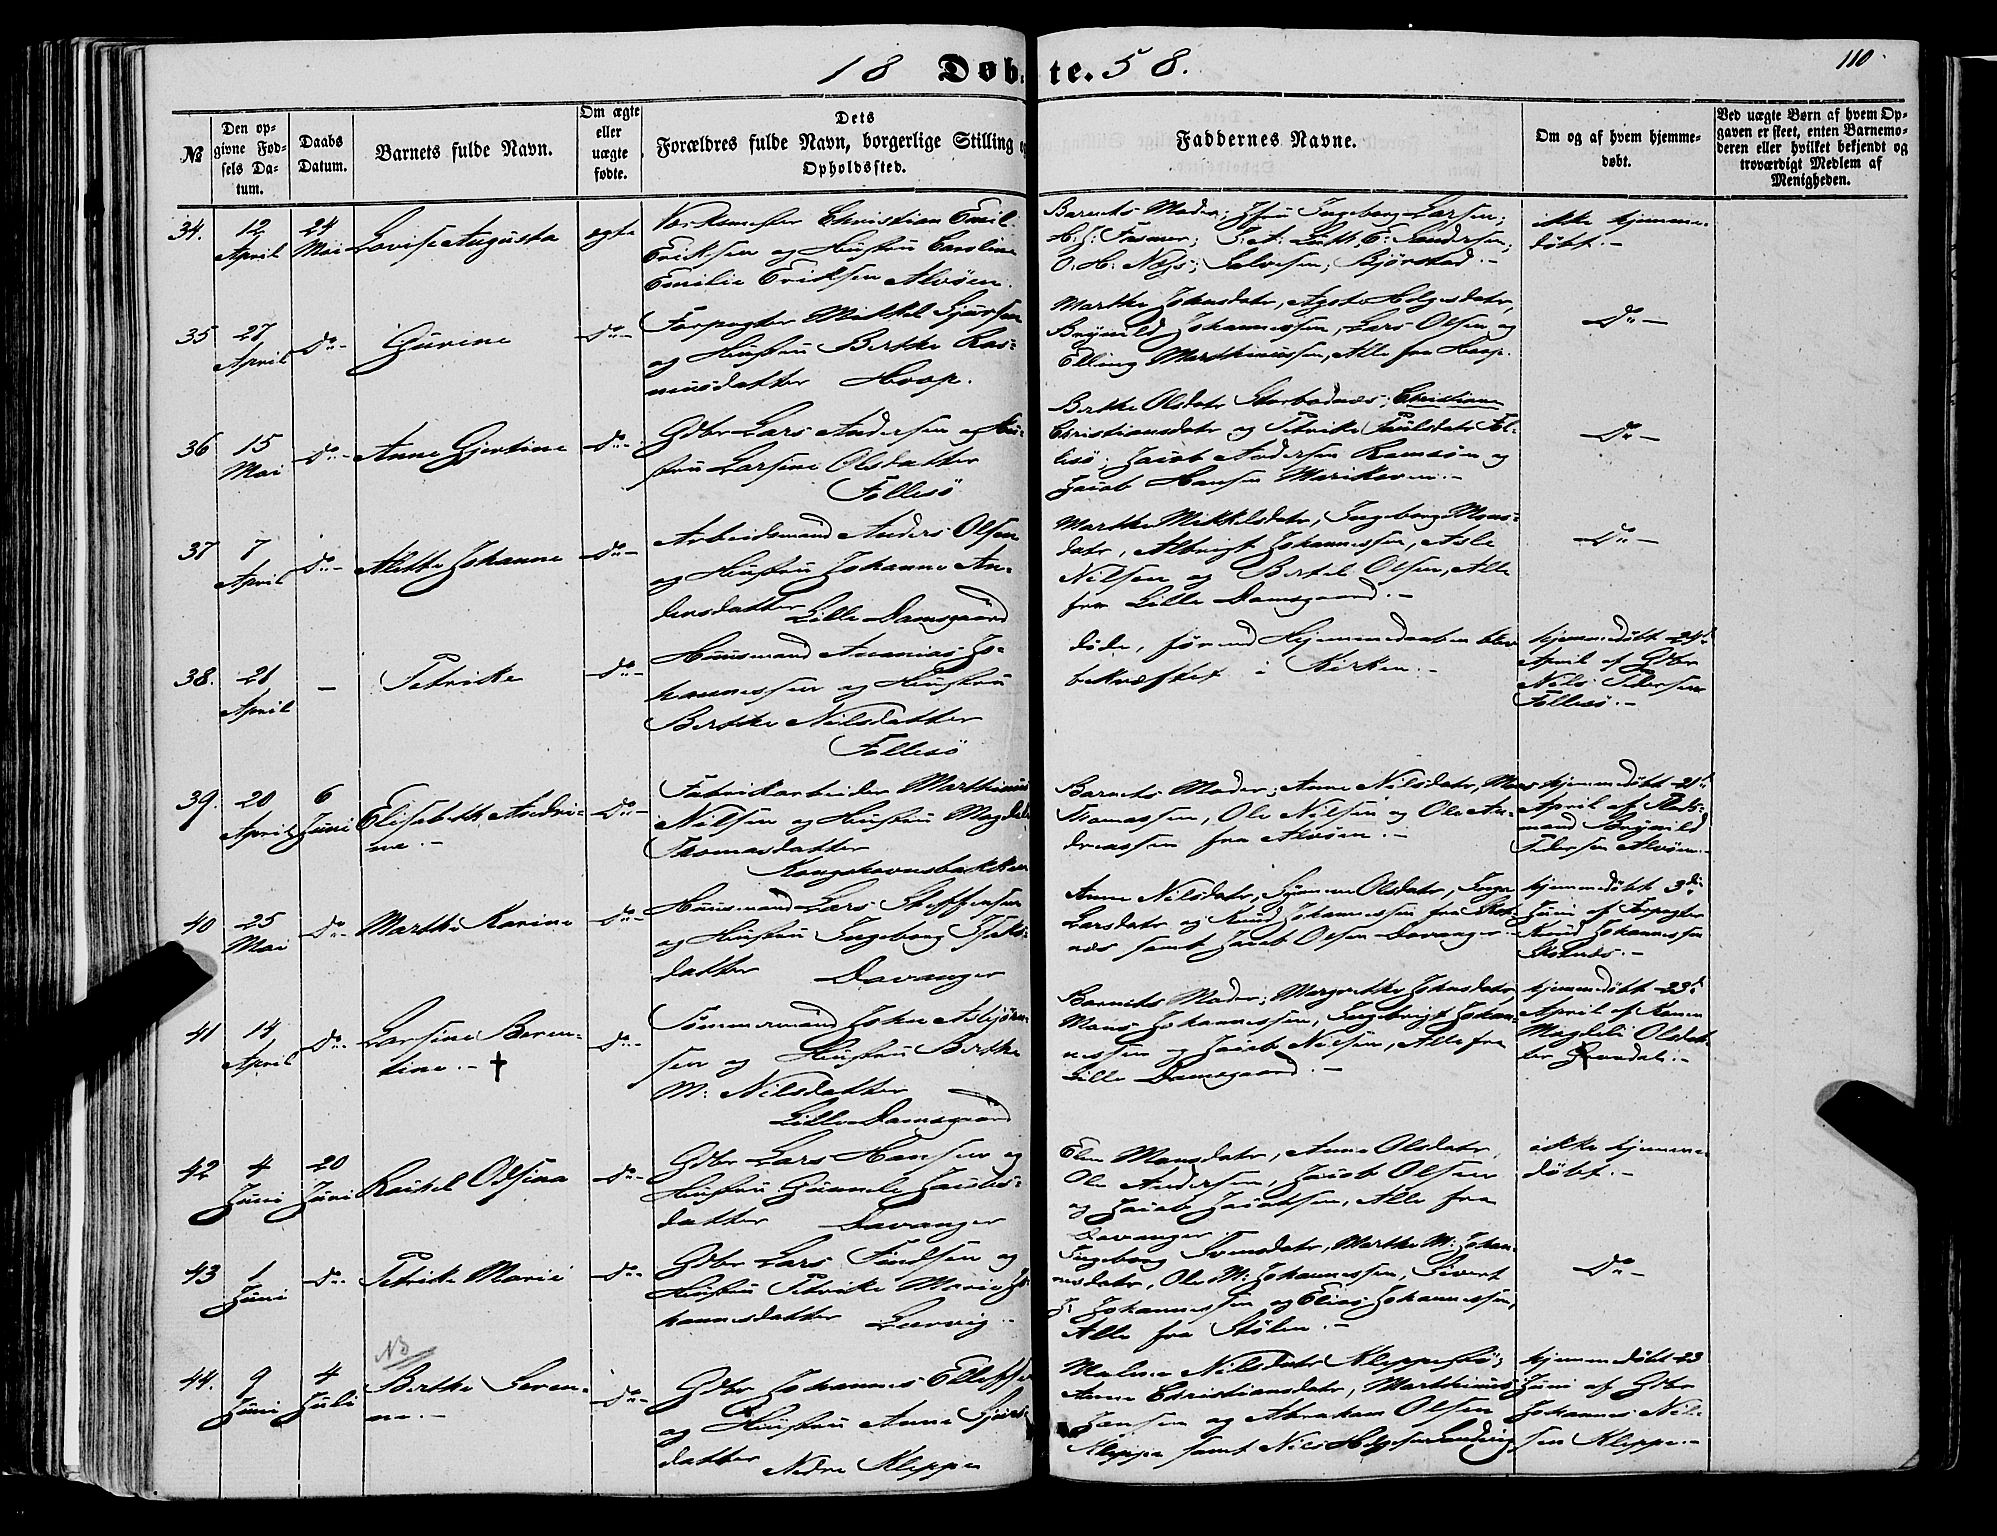 18 Døbte. 58.
110.
№
Den opgivne Fødsels Datum.
Daabs Datum.
Barnets fulde Navn.
Om ægte eller uægte fødte.
Dets Forældres fulde Navn, borgerlige Stilling og Opholdssted.
Faddernes Navne.
Om og af hvem hjemmedøbt.
Ved uægte Børn af hvem Opgaven er skeet, enten Barnemoderen eller hvilket bekjendt og troværdigt Medlem af Menigheden.
34.
12 April
24 Mai
Lovise Augusta
ægte
Værksmester Christian Emil
Eriksen og Hustru Caroline
Emilie Eriksen Alvøen.
Barnets Moder; Jfru Ingeborg Larsen;
H: J: Fasmer;
ikke hjemme-
døbt.-
35
27 April
Do-
Gurine
Do-
Forpagter Mikkel Sjursen
og Hustru Berthe Ras-
musdatter Hoop.
Marthe Johnsdatr,
Brynild Johannessen, Lars Olsen og
Elling Marthinussen, Alle fra Hoop.
Do-
36
15 Mai
Do-
Anne Gjertine
Do-
Gdbr Lars Andersen og Hu-
stru Larsine Olsdatter
Follesö
Berthe Olsdatr Storbodnæs; Christiane
Christiansdatr og Petrike Paulsdatr Fol-
lesö; Jacob Andersen Ramsøen og
Jacob Hansen
Do-
37
7 April
Do-
Alette Johanne
Do-
Arbeidsmand Anders Olsen
og Hustru Johanne An-
dersdatter Lille Damsgaard
Marthe Mikkelsdatr, Ingeborg Mons-
datr, Albrigt Johannessen, Asle
Nilsen og Bertel Olsen, Alle
fra Lille Damsgaard.-
Do-
38.
21 April
-
Petrike
Do-
Huusmand Ananias Jo-
hannessen og Hustru
Berthe Nilsdatter
Follesö
døde, førend Hjemmedaaben blev
bekræftet i Kirken.-
hjemmedøbt 24d
April af Gdbr
Nels Pedersen
Follesö.-
39.
20 April
6 Juni
Elisabeth Andri-
ne.-
Do-
Fabrikarbeider Marthinus
Nilsen og Hustru Magdele
Thomasdatter
Kongshavnsbakken
Barnets Moder; Anne Nilsdatr, Mons
Thomassen, Ole Nilsen og Ole An-
dreassen fra Alvøen.-
hjemmedøbt 21d
April af
mand Brynild
Pedersen Alvøen.-
40
25 Mai
Do-
Marthe Karine
Do-
Huusmand Lars Steffensen
og Hustru Ingeborg Isaks-
datter Davanger
Anne Nilsdatr, Synneve Olsdatr, Inga
Larsdatr og Knud Johannessen fra Skok-
næs samt Jacob Olsen Davanger.
hjemmedøbt 3die
Juni af Forpagter
Knud Johannessen
41
14 April
Do-
Larsine Beren-
tine.- †
Do-
Tømmermand John Asbjørn-
sen og Hustru Berthe
M: Nilsdatter
Lille Damsgaard
Barnets Moder; Margrethe Johnsdatr,
Mons Johannessen, Ingebrigt Johan-
nessen og Jacob Nilsen, Alle fra
Lille Damsgaard.-
hjemmedøbt 23d
April af
Magdeli Olsdat-
ter
42
4 Juni
20 Juni
Rakel Olsina
Do-
Gdbr Lars Hansen og
Hustru Gunnele Jacobs-
datter Davanger
Elen Monsdatr, Anne Olsdatr,
Ole Andersen, Jacob Olsen
og Jacob Jacobsen, Alle fra
Davanger
ikke hjemme-
døbt.-
43
1 Juni
Do-
Petrike Marie
Do-
Gdbr Lars Findsen og
Hustru Petrike Marie Jo-
hannesdatter
Ingeborg Svensdatr, Marthe M: Johan-
nsdatr, Ole M: Johannessen, Sivert
J: Johannessen og Elias Johannessen,
Alle fra Stølen.-
Do-
NB
44.
9 Juni
4 Juli
Berthe Seren-
ne.-
Do-
Gdbr Johannes Ellefsen
og Hustru Anne Sjurs-
datter Nedre Kleppe
Malene Nilsdatr Kleppestö;
Anne Christiansdatr, Marthinus
Jansen og Abraham Olsen
Kleppe samt Nils
hjemmedøbt 23
Juni af Gdbr
Johannes Nil-
sen Kleppe.-